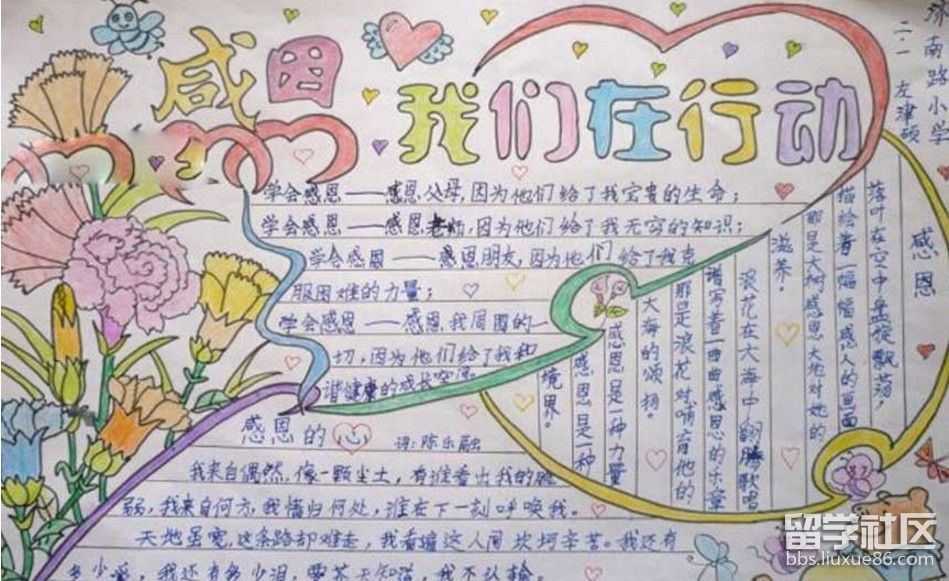 感恩
我们在行动
南路小学
二.1 左津硕
学会感恩——感恩父母,因为他们给了我宝贵的生命;
学会感恩——感恩老师,因为他们给了我无穷的知识;
学会感恩——感恩朋友,因为他们给了我克
服困难的力量;
学会感恩——感恩我周围的一
切,因为他们给了我和
谐健康的成长空间
感恩
落叶在空中盘旋飘荡,
描绘着一幅幅感人的画面
那是大树感恩大地对她的
滋养。
浪花在大海中翻腾歌唱
谱写着一曲曲感恩的乐章
那是浪花对哺育他的
大海的颂扬。
感恩是一种力量
感恩是一种
境界。
感恩的心 词:陈乐融
我来自偶然,像一颗尘土,有谁看出我的脆
弱,我来自何方,我情归何处,谁在下一刻呼唤我。
天地虽宽,这条路却难走,我看遍这人间坎坷辛苦。我还有
多少爱,我还有多少泪,要苍天知道,我不认输
留学社区
bbs.liuxue86.com